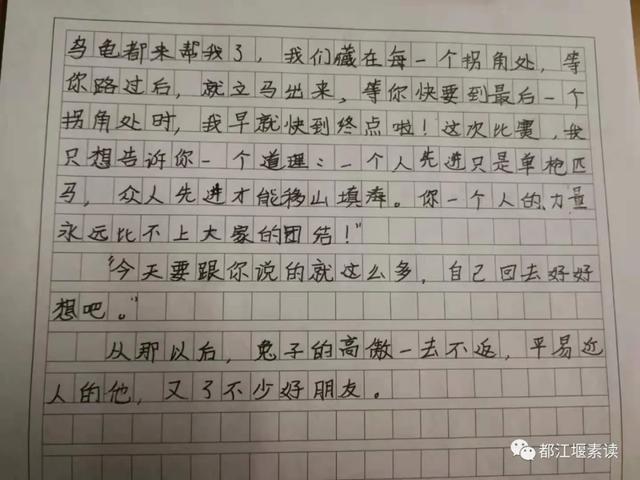 乌龟都来帮我了，我们藏在每一个拐角处，等
你路过后，就立马出来，等你快要到最后一个
拐角处时，我早就快到终点啦！这次比赛，我
只想告诉你一个道理：一个人先进只是单枪匹
马，众人先进才能移山填海。你一个人的力量
永远比不上大家的团结！”
“今天要跟你说的就这么多，自己回去好好
想吧。”
从那以后，兔子的高傲一去不返，平易近
人的他，又了不少好朋友。
都江堰素读